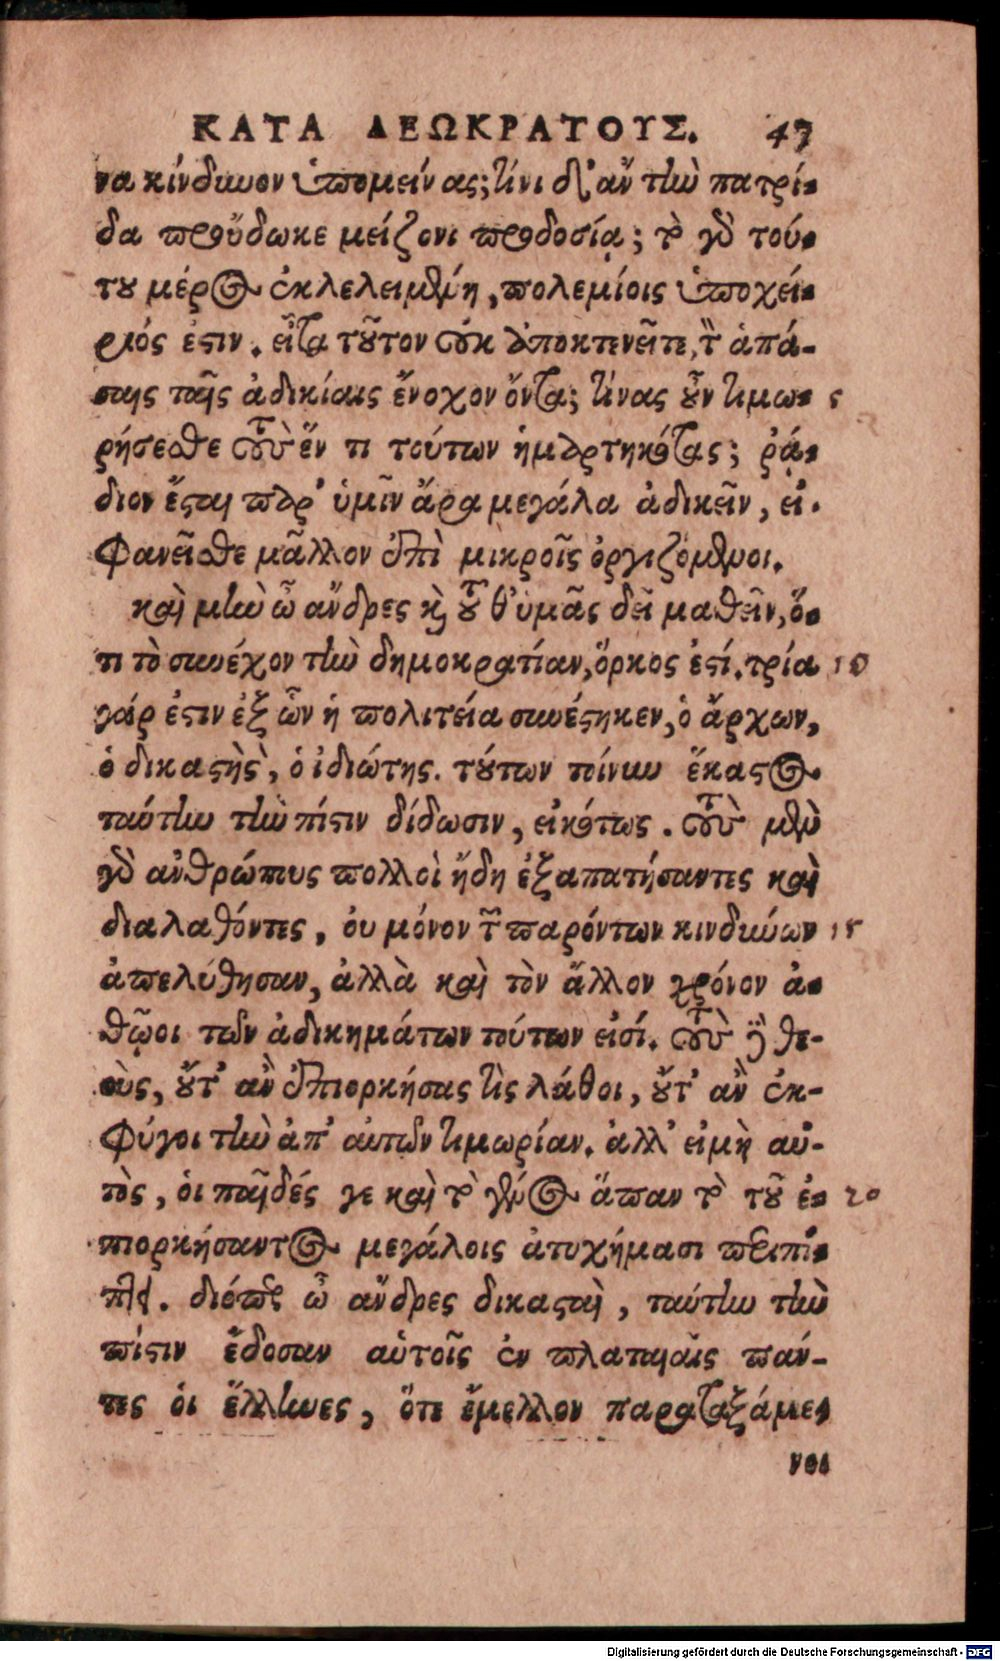 ΚΑΤΑ ΛΕΩΚΡΑΤΟΥΣ. 47
να κίνδυνον ὑπομείνας; τίνι δ᾽ ἂν τὴν πατρί-
δα προὔδωκε μείζονι προδοσίᾳ; τὸ γὰρ τού-
του μέρος ἐκλελειμμένη, πολεμίοις ὑποχεί-
ριός ἐστιν. εἶτα τοῦτον οὐκ ἀποκτενεῖτε, τὸν ἁπά-
σαις ταῖς ἀδικίαις ἔνοχον ὄντα; τίνας οὖν τιμω- 5
ρήσεσθε τοὺς ἕν τι τούτων ἡμαρτηκότας; ῥᾴ-
διον ἔσται παρ᾽ ὑμῖν ἄρα μεγάλα ἀδικεῖν, εἰ
φανεῖσθε μᾶλλον ἐπὶ μικροῖς ὀργιζόμενοι.
καὶ μὴν ὦ ἄνδρες καὶ τοῦθ᾽ ὑμᾶς δεῖ μαθεῖν, ὅ-
τι τὸ συνέχον τὴν δημοκρατίαν, ὅρκος ἐστί. τρία 10
γάρ ἐστιν ἐξ ὧν ἡ πολιτεία συνέστηκεν, ὁ ἄρχων,
ὁ δικαστὴς, ὁ ἰδιώτης. τούτων τοίνυν ἕκαστος
ταύτην τὴν πίστιν δίδωσιν, εἰκότως. τοὺς μὲν
γὰρ ἀνθρώπους πολλοὶ ἤδη ἐξαπατήσαντες καὶ
διαλαθόντες, οὐ μόνον τῶν παρόντων κινδύνων 15
ἀπελύθησαν, ἀλλὰ καὶ τὸν ἄλλον χρόνον ἀ-
θῷοι τῶν ἀδικημάτων τούτων εἰσί. τοὺς δὲ θε-
οὺς, οὔτ᾽ ἂν ἐπιορκήσας τὶς λάθοι, οὔτ᾽ ἂν ἐκ-
φύγοι τὴν ἀπ᾽ αὐτῶν τιμωρίαν. ἀλλ᾽ εἰ μὴ αὐ-
τὸς, οἱ παῖδές γε καὶ τὸ γένος ἅπαν τὸ τοῦ ἐ- 20
πιορκήσαντος μεγάλοις ἀτυχήμασι περιπί-
πτει. διόπερ ὦ ἄνδρες δικασταὶ, ταύτην τὴν
πίστιν ἔδοσαν αὑτοῖς ἐν πλαταιαῖς πάν-
τες οἱ ἕλληνες, ὅτε ἔμελλον παραταξάμε-
νοι
Digitalisierung gefördert durch die Deutsche Forschungsgemeinschaft - DFG